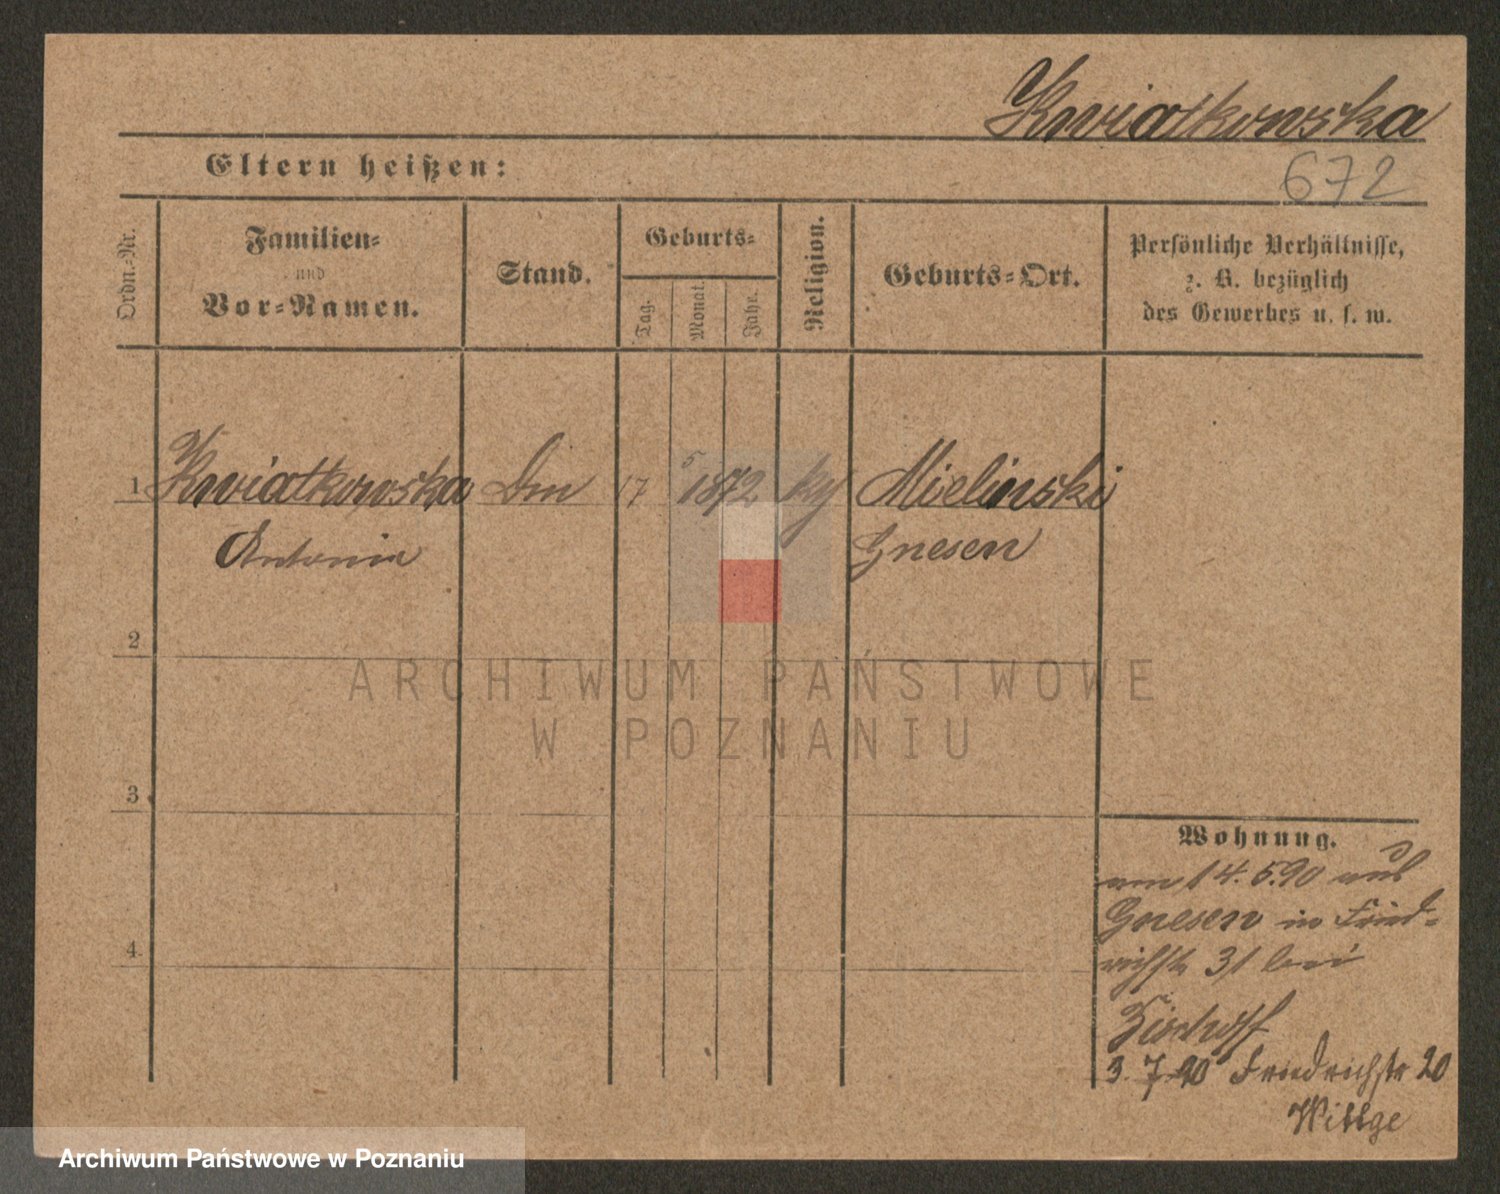 Kwiatkowska
Eltern heißen:
672
Ordn.-Nr.
Familien-
und
Vor-Namen.
Stand.
Geburts-
Tag.
Monat.
Jahr.
Religion.
Geburts-Ort.
Persönliche Verhältnisse,
z. B. bezüglich
des Gewerbes u. s. w.
1 Kwiatkowska 17 5 1872 Mielinski
Antonia Gnesen
2
3
4
ARCHIWUM PAŃSTWOWE
W POZNANIU
Wohnung.
am 14.5.90 aus
Gnesen in Fried-
richstr 31 bei
3. 7. 90 Friedrichstr 20
Wittge
Archiwum Państwowe w Poznaniu